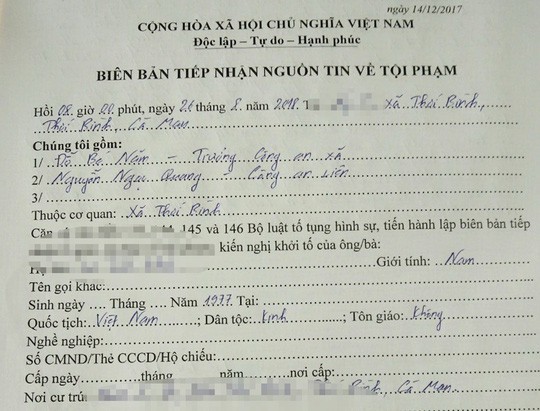 ngày 14/12/2017
CỘNG HÒA XÃ HỘI CHỦ NGHĨA VIỆT NAM
Độc lập – Tự do – Hạnh phúc
BIÊN BẢN TIẾP NHẬN NGUỒN TIN VỀ TỘI PHẠM
Hồi 08 giờ 00 phút, ngày 26 tháng 8 năm 2018. xã Thới Bình,
Thới Bình, Cà Mau
Chúng tôi gồm:
1/ Đỗ Bé Năm – Trưởng Công an xã
2/ Nguyễn Ngọc Quang – Công an viên
3/
Thuộc cơ quan: Xã Thới Bình
145 và 146 Bộ luật tố tụng hình sự, tiến hành lập biên bản tiếp
kiến nghị khởi tố của ông/bà:
Giới tính: Nam
Tên gọi khác:
Sinh ngày .... Tháng .... Năm 1977 Tại:
Quốc tịch: Việt Nam; Dân tộc: Kinh; Tôn giáo: Không
Nghề nghiệp:
Số CMND/Thẻ CCCD/Hộ chiếu:
Cấp ngày tháng năm nơi cấp:
Nơi cư trú: Thới Bình, Cà Mau.